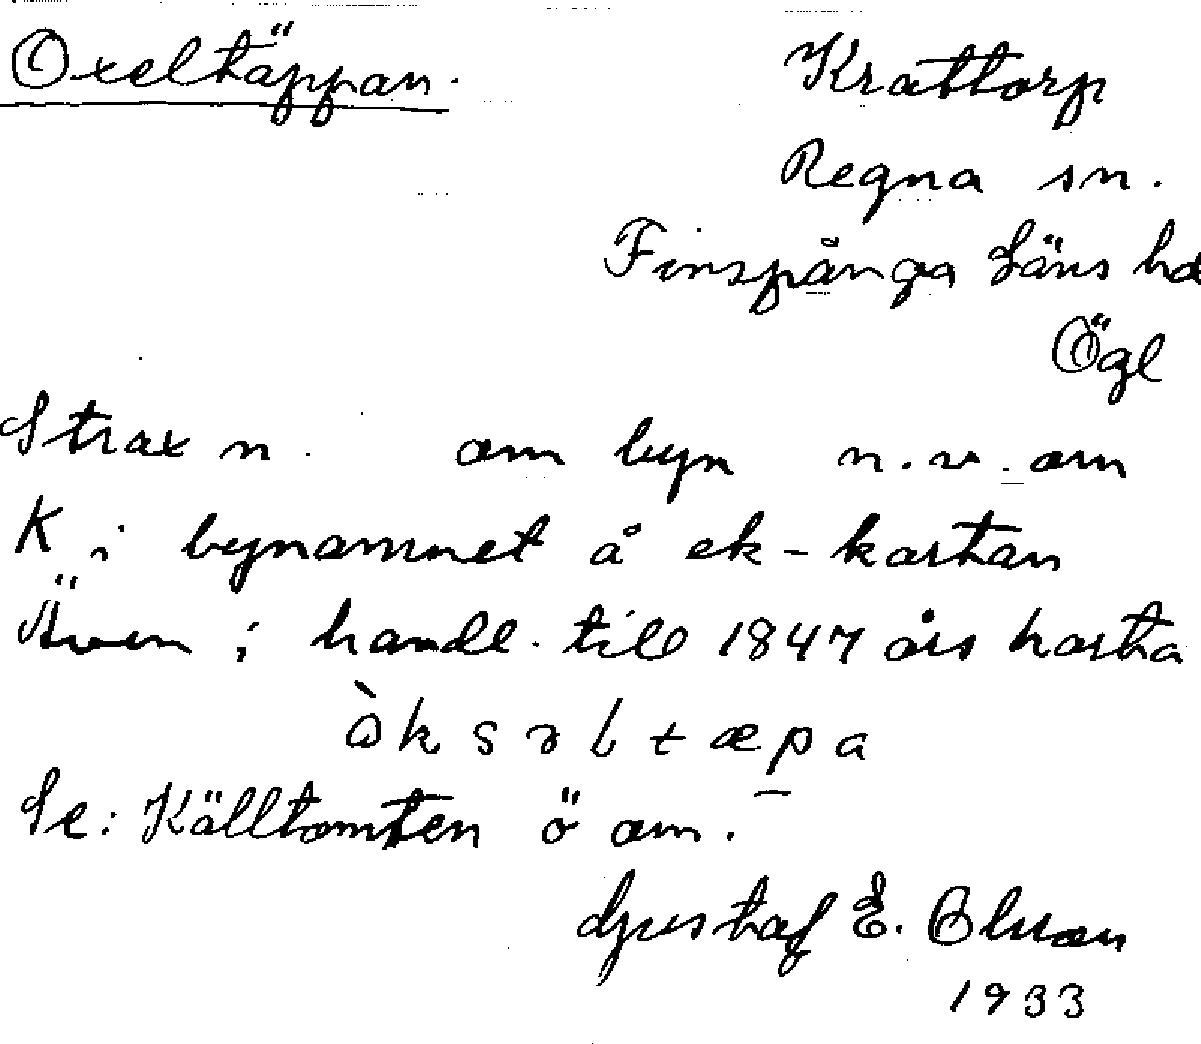 Oxeltäppan.
Krattorp
Regna sn.
Finspånga läns hd
Ögl
Strax n. om byn n.v. om
K i bynamnet å ek-kartan
Även i handl. till 1847 års karta
ò̀ksəltæpa
Se: Källtomten ö om.
Gustaf E. Olsson
1933